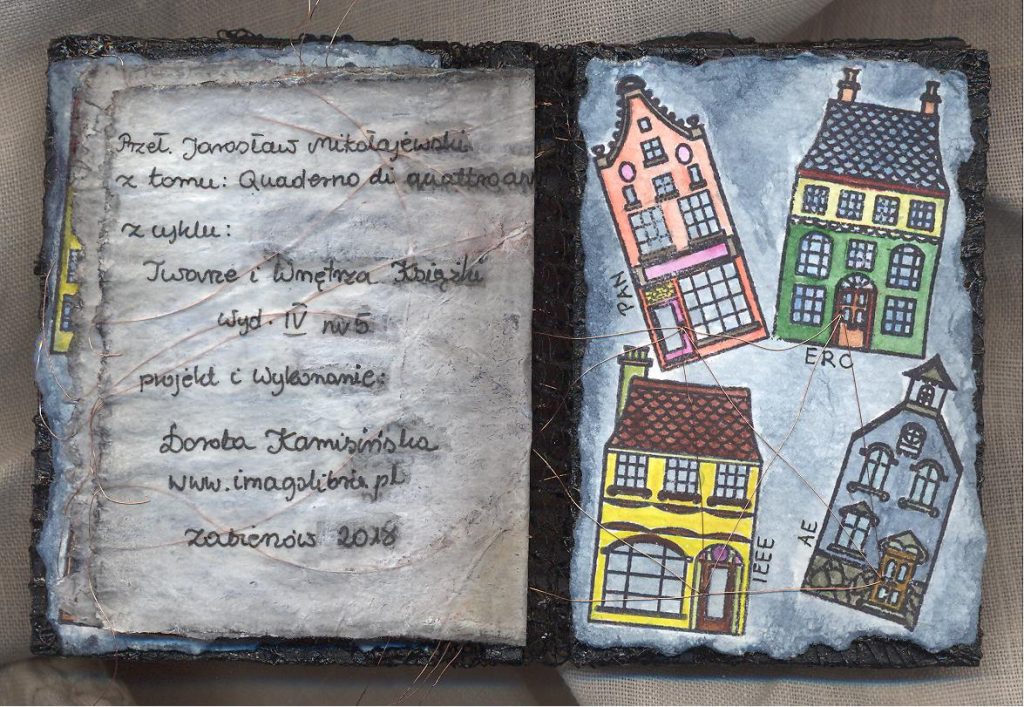 Przeł. Jarosław Mikołajewski
z tomu: Quaderno di quattro an
z cyklu:
Twarze i Wnętrza Książki
wyd. IV nr 5
projekt i wykonanie:
Dorota Kamisińska
www.imagolibris.pl
Zabierzów 2018
PAN
ERC
IEEE
AE